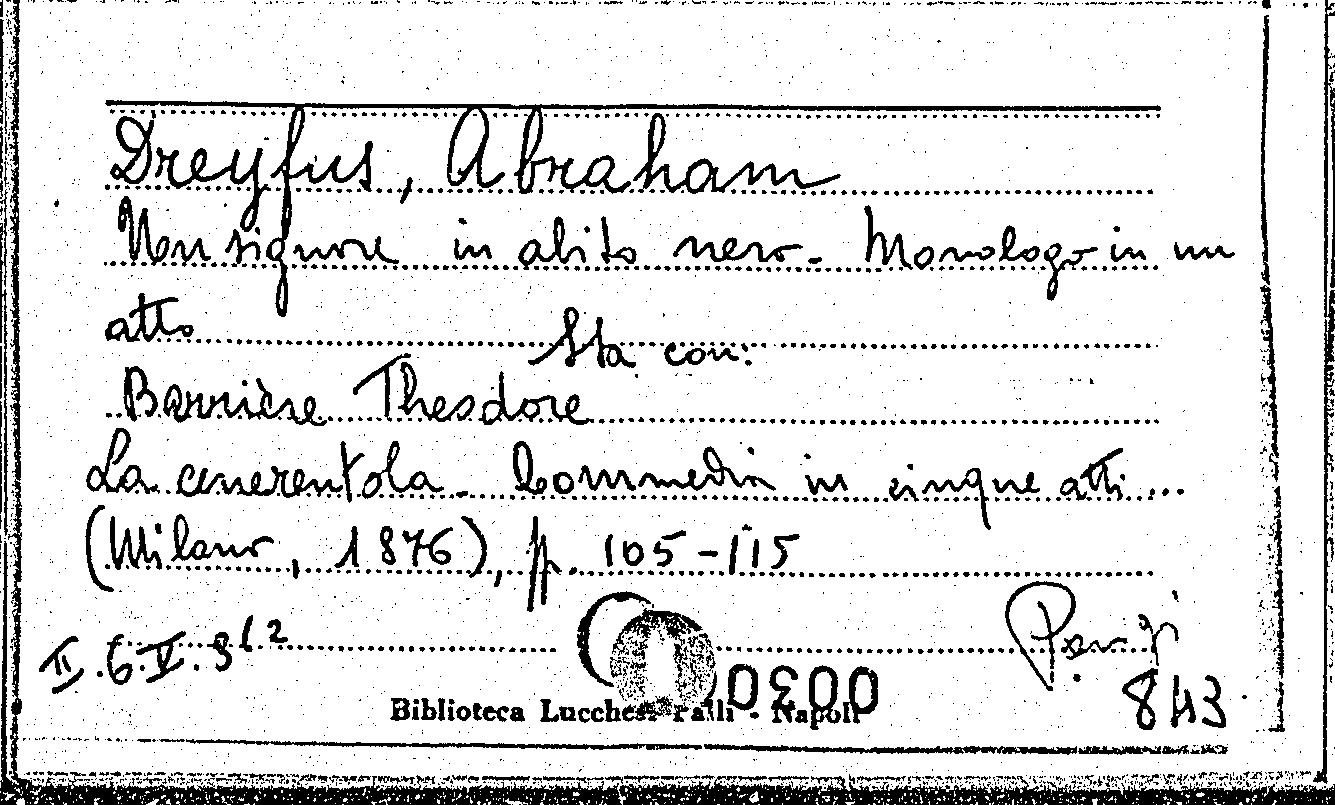 Dreyfus, Abraham
Un signore in abito nero. Monologo in un
atto
Sta con:
Barrière Theodore
La cenerentola. Commedia in cinque atti...
(Milano, 1876), pp. 105-115
II.6.V.9(2
0030
Biblioteca Lucchesi Palli - Napoli
843